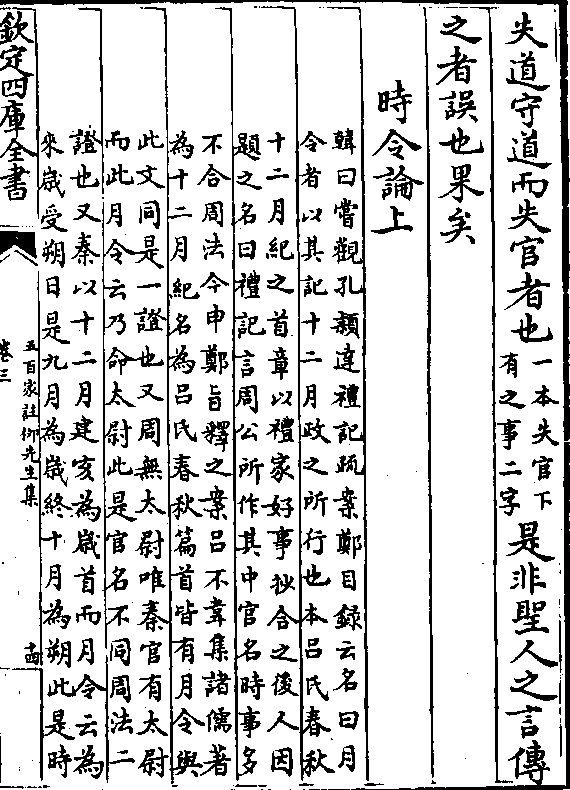 失道守道而失官者也一本失官下有之事二字是非聖人之言傳
之者誤也果矣
時令論上
韓曰嘗觀孔穎達禮記疏案鄭目録云名曰月
令者以其記十二月政之所行也本吕氏春秋
十二月紀之首章以禮家好事抄合之後人因
題之名曰禮記言周公所作其中官名時事多
不合周法今申鄭旨釋之案吕不韋集諸儒著
為十二月紀名為吕氏春秋篇首皆有月令與
此文同是一證也又周無太尉唯秦官有太尉
而此月令云乃命太尉此是官名不同周法二
證也又秦以十二月建亥為歳首而月令云為
來歳受朔日是九月為歳終十月為朔此是時
欽定四庫全書
五百家註柳先生集
卷三
十四